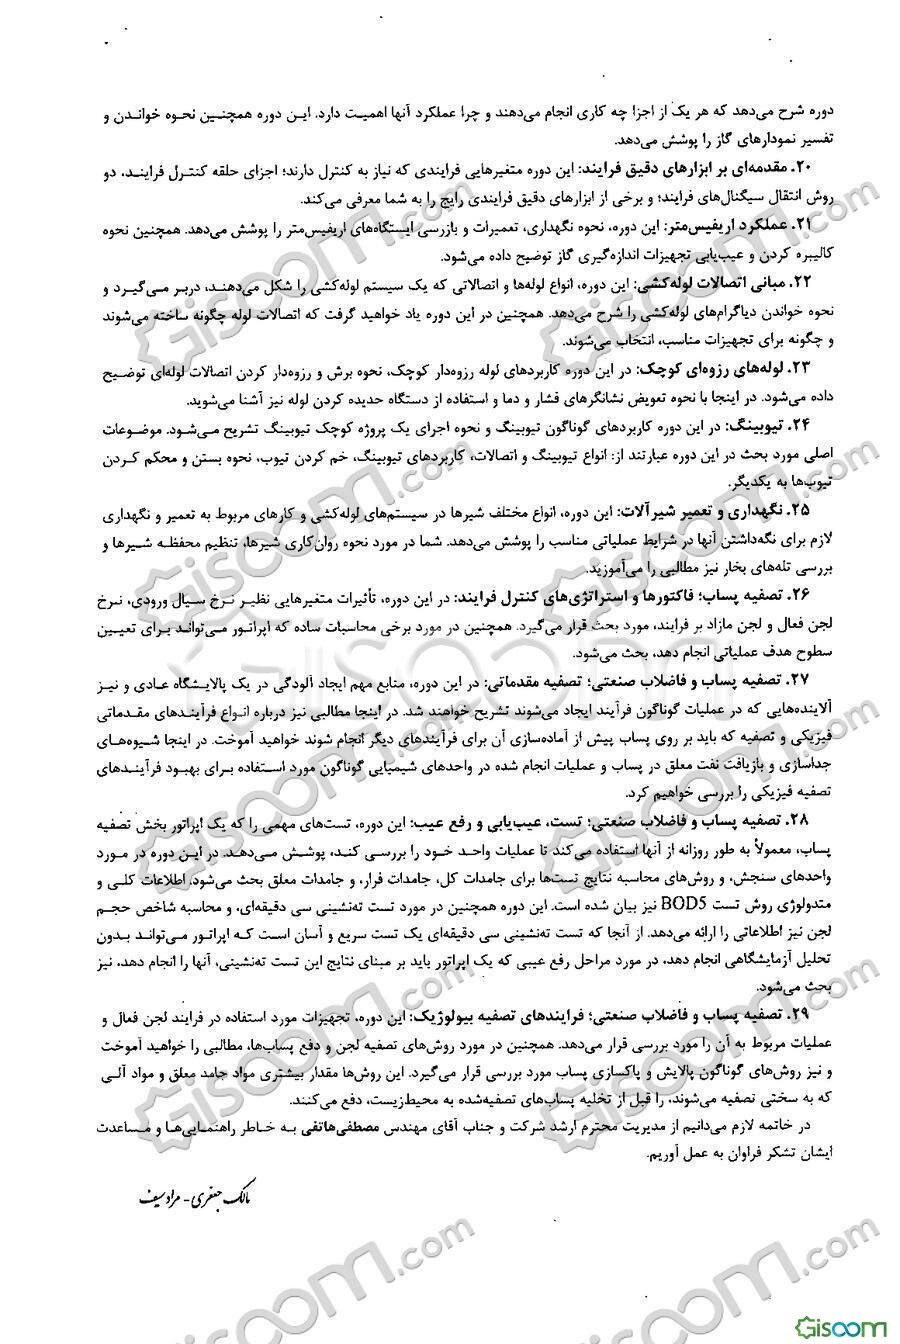 دوره شرح می‌دهد که هر یک از اجزا چه کاری انجام می‌دهند و چرا عملکرد آنها اهمیت دارد. این دوره همچنین نحوه خواندن و
تفسیر نمودارهای گاز را پوشش می‌دهد.
۲۰. مقدمه‌ای بر ابزارهای دقیق فرایند: این دوره متغیرهایی فرایندی که نیاز به کنترل دارند؛ اجزای حلقه کنترل فرایند، دو
روش انتقال سیگنال‌های فرایند؛ و برخی از ابزارهای دقیق فرایندی رایج را به شما معرفی می‌کند.
۲۱. عملکرد اریفیس‌متر: این دوره، نحوه نگهداری، تعمیرات و بازرسی ایستگاه‌های اریفیس‌متر را پوشش می‌دهد. همچنین نحوه
کالیبره کردن و عیب‌یابی تجهیزات اندازه‌گیری گاز توضیح داده می‌شود.
۲۲. مبانی اتصالات لوله‌کشی: این دوره، انواع لوله‌ها و اتصالاتی که یک سیستم لوله‌کشی را شکل می‌دهند، دربر می‌گیرد و
نحوه خواندن دیاگرام‌های لوله‌کشی را شرح می‌دهد. همچنین در این دوره یاد خواهید گرفت که اتصالات لوله چگونه ساخته می‌شوند
و چگونه برای تجهیزات مناسب، انتخاب می‌شوند.
۲۳. لوله‌های رزوه‌ای کوچک: در این دوره کاربردهای لوله رزوه‌دار کوچک، نحوه برش و رزوه‌دار کردن اتصالات لوله‌ای توضیح
داده می‌شود. در اینجا با نحوه تعویض نشانگرهای فشار و دما و استفاده از دستگاه حدیده کردن لوله نیز آشنا می‌شوید.
۲۴. تیوبینگ: در این دوره کاربردهای گوناگون تیوبینگ و نحوه اجرای یک پروژه کوچک تیوبینگ تشریح می‌شود. موضوعات
اصلی مورد بحث در این دوره عبارتند از: انواع تیوبینگ و اتصالات، کاربردهای تیوبینگ، خم کردن تیوب، نحوه بستن و محکم کردن
تیوب‌ها به یکدیگر.
۲۵. نگهداری و تعمیر شیرآلات: این دوره، انواع مختلف شیرها در سیستم‌های لوله‌کشی و کارهای مربوط به تعمیر و نگهداری
لازم برای نگه‌داشتن آنها در شرایط عملیاتی مناسب را پوشش می‌دهد. شما در مورد نحوه روان‌کاری شیرها، تنظیم محفظه شیرها و
بررسی تله‌های بخار نیز مطالبی را می‌آموزید.
۲۶. تصفیه پساب؛ فاکتورها و استراتژی‌های کنترل فرایند: در این دوره، تأثیرات متغیرهایی نظیر نرخ سیال ورودی، نرخ
لجن فعال و لجن مازاد بر فرایند، مورد بحث قرار می‌گیرد. همچنین در مورد برخی محاسبات ساده که اپراتور می‌تواند برای تعیین
سطوح هدف عملیاتی انجام دهد، بحث می‌شود.
۲۷. تصفیه پساب و فاضلاب صنعتی؛ تصفیه مقدماتی: در این دوره، منابع مهم ایجاد آلودگی در یک پالایشگاه عادی و نیز
آلاینده‌هایی که در عملیات گوناگون فرآیند ایجاد می‌شوند تشریح خواهند شد. در اینجا مطالبی نیز درباره انواع فرآیندهای مقدماتی
فیزیکی و تصفیه که باید بر روی پساب پیش از آماده‌سازی آن برای فرآیندهای دیگر انجام شوند خواهید آموخت. در اینجا شیوه‌های
جداسازی و بازیافت نفت معلق در پساب و عملیات انجام شده در واحدهای شیمیایی گوناگون مورد استفاده برای بهبود فرآیندهای
تصفیه فیزیکی را بررسی خواهیم کرد.
۲۸. تصفیه پساب و فاضلاب صنعتی؛ تست، عیب‌یابی و رفع عیب: این دوره، تست‌های مهمی را که یک اپراتور بخش تصفیه
پساب، معمولاً به طور روزانه از آنها استفاده می‌کند تا عملیات واحد خود را بررسی کند، پوشش می‌دهد. در این دوره در مورد
واحدهای سنجش، و روش‌های محاسبه نتایج تست‌ها برای جامدات کل، جامدات فرار، و جامدات معلق بحث می‌شود. اطلاعات کلی و
متدولوژی روش تست BOD5 نیز بیان شده است. این دوره همچنین در مورد تست ته‌نشینی سی دقیقه‌ای، و محاسبه شاخص حجم
لجن نیز اطلاعاتی را ارائه می‌دهد. از آنجا که تست ته‌نشینی سی دقیقه‌ای یک تست سریع و آسان است که اپراتور می‌تواند بدون
تحلیل آزمایشگاهی انجام دهد، در مورد مراحل رفع عیبی که یک اپراتور باید بر مبنای نتایج این تست ته‌نشینی، آنها را انجام دهد، نیز
بحث می‌شود.
۲۹. تصفیه پساب و فاضلاب صنعتی؛ فرایندهای تصفیه بیولوژیک: این دوره، تجهیزات مورد استفاده در فرایند لجن فعال و
عملیات مربوط به آن را مورد بررسی قرار می‌دهد. همچنین در مورد روش‌های تصفیه لجن و دفع پساب‌ها، مطالبی را خواهید آموخت
و نیز روش‌های گوناگون پالایش و پاکسازی پساب مورد بررسی قرار می‌گیرد. این روش‌ها مقدار بیشتری مواد جامد معلق و مواد آلی
که به سختی تصفیه می‌شوند، را قبل از تخلیه پساب‌های تصفیه‌شده به محیط‌زیست، دفع می‌کنند.
در خاتمه لازم می‌دانیم از مدیریت محترم ارشد شرکت و جناب آقای مهندس مصطفی‌هاتفی به خاطر راهنمایی‌ها و مساعدت
ایشان تشکر فراوان به عمل آوریم.
مالک جعفری - مراد سیف
Gisoom